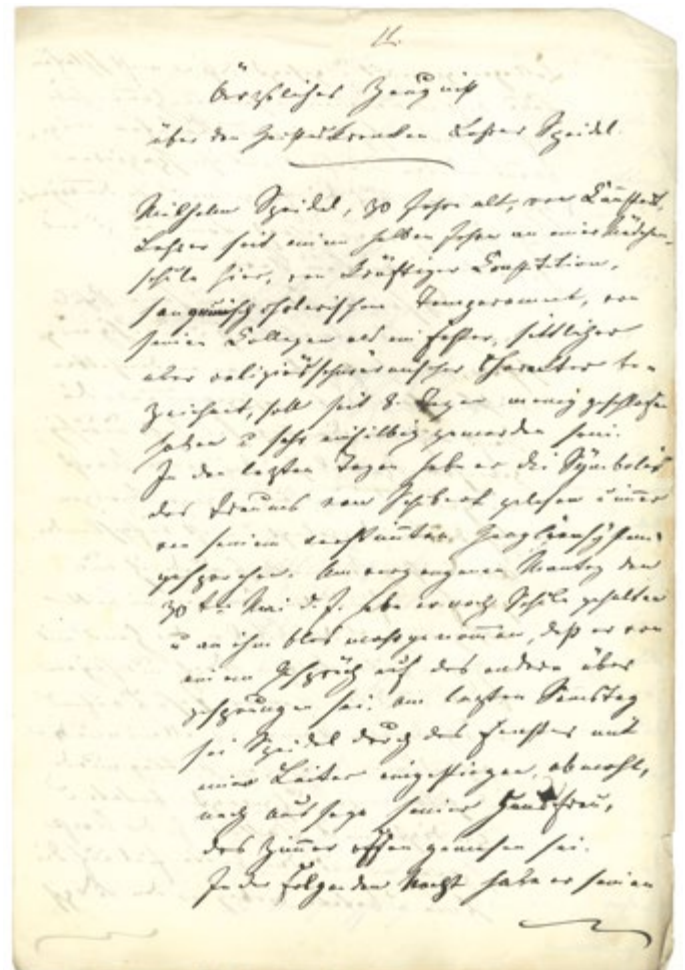 Ärztliches Zeugniß
über den Geisteskranken Lehrer Speidel.
Wilhelm Speidel, 30 Jahre alt, von Cannstatt,
Lehrer seit einem halben Jahre an einer Mädchen-
schule hier, von kräftiger Constitution,
sanguinisch cholerischem Temperament, von
seinen Collegen als ein sittlicher
aber religiösschwärmerischer Charakter be-
zeichnet, soll seit 8 Tagen wenig geschlafen
haben u sehr einsilbig geworden sein.
In den letzten Tagen habe er die Symbolik
des Traums von Schubert gelesen u immer
von seinem Gangliensystem
gesprochen. Am vergangenen Montag den
30ten Mai d. J. habe er noch Schule gehalten
u an ihm blos wahrgenommen, daß er von
einem Gespräch auf das andere über
gesprungen sei. Am letzten Samstag
sei Speidel durch das Fenster mit
einer Leiter eingestiegen, obwohl,
nach Aussage seiner Hausfrau,
das Zimmer offen gewesen sei.
In der folgenden Nacht habe er seinen